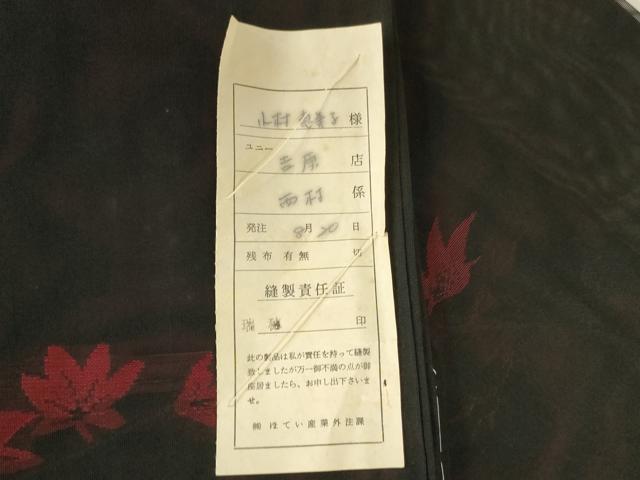 小村 様
ユニー
吉原 店
西村 係
発注 8月20日
残布 有 無 切
縫製責任証
瑞穂 印
此の製品は私が責任を持って縫製
致しましたが万一御不満の点が御
座居ましたら、お申し出下さいま
せ。
㈱ ほてい産業外注課